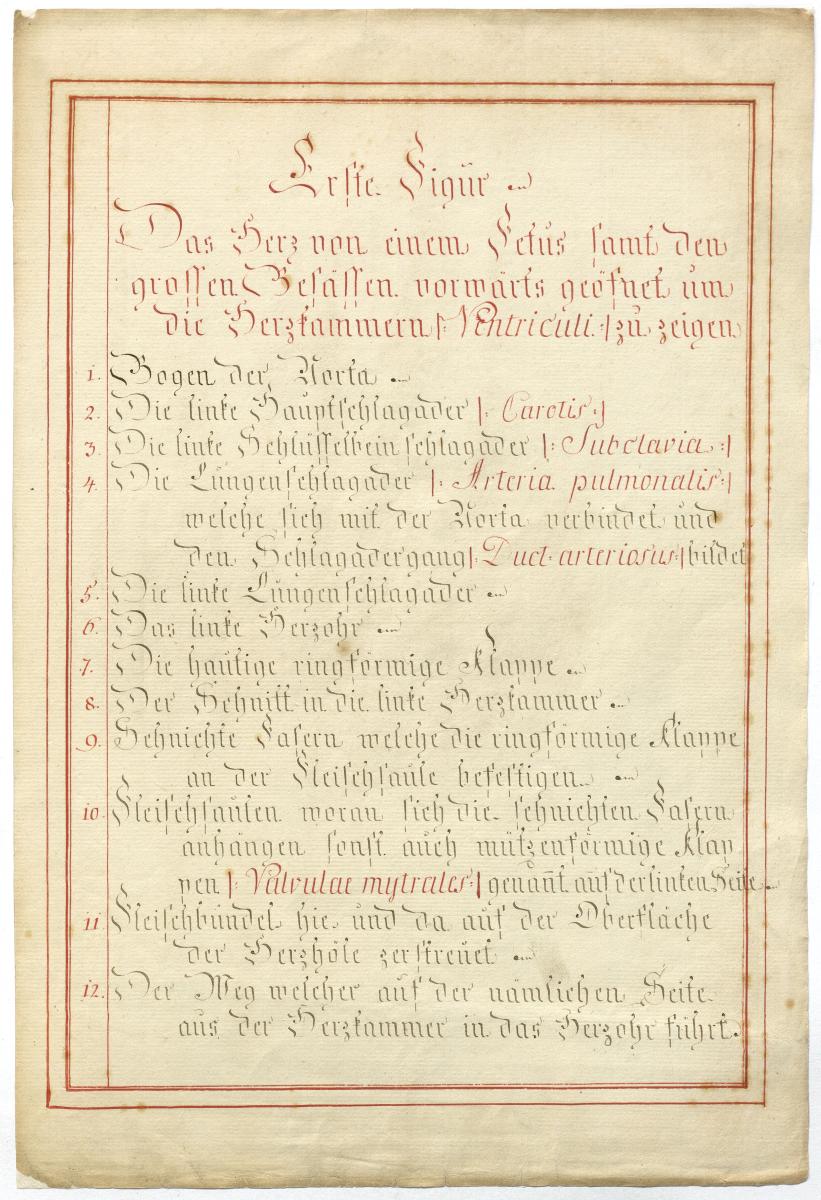 Erste Figur
Das Herz von einem Fetus samt den
grossen Gefässen vorwärts geöfnet um
die Herzkammern |: Ventriculi :| zu zeigen
1. Bogen der Aorta
2. Die linke Hauptschlagader |: Carotis :|
3. Die linke Schlüsselbein schlagader |: Subclavia :|
4. Die Lungenschlagader |: Arteria pulmonalis :|
welche sich mit der Aorta verbindet und
den Schlagadergang |: Duct. arteriosus :| bildet
5. Die linke Lungenschlagader
6. Das linke Herzohr
7. Die hautige ringförmige Klappe
8. Der Schnitt in die linke Herzkammer
9. Sehnichte Fasern welche die ringförmige Klappe
an der Fleischsaule befestigen
10. Fleischsaulen woran sich die sehnichten Fasern
anhängen sonst auch mützenförmige Klap
pen |: Valvulae mytrales :| genañt auf der linken Seite
11. Fleischbündel hie und da auf der Oberfläche
der Herzhöle zerstreuet
12. Der Weg welcher auf der nämlichen Seite
aus der Herzkammer in das Herzohr führt.